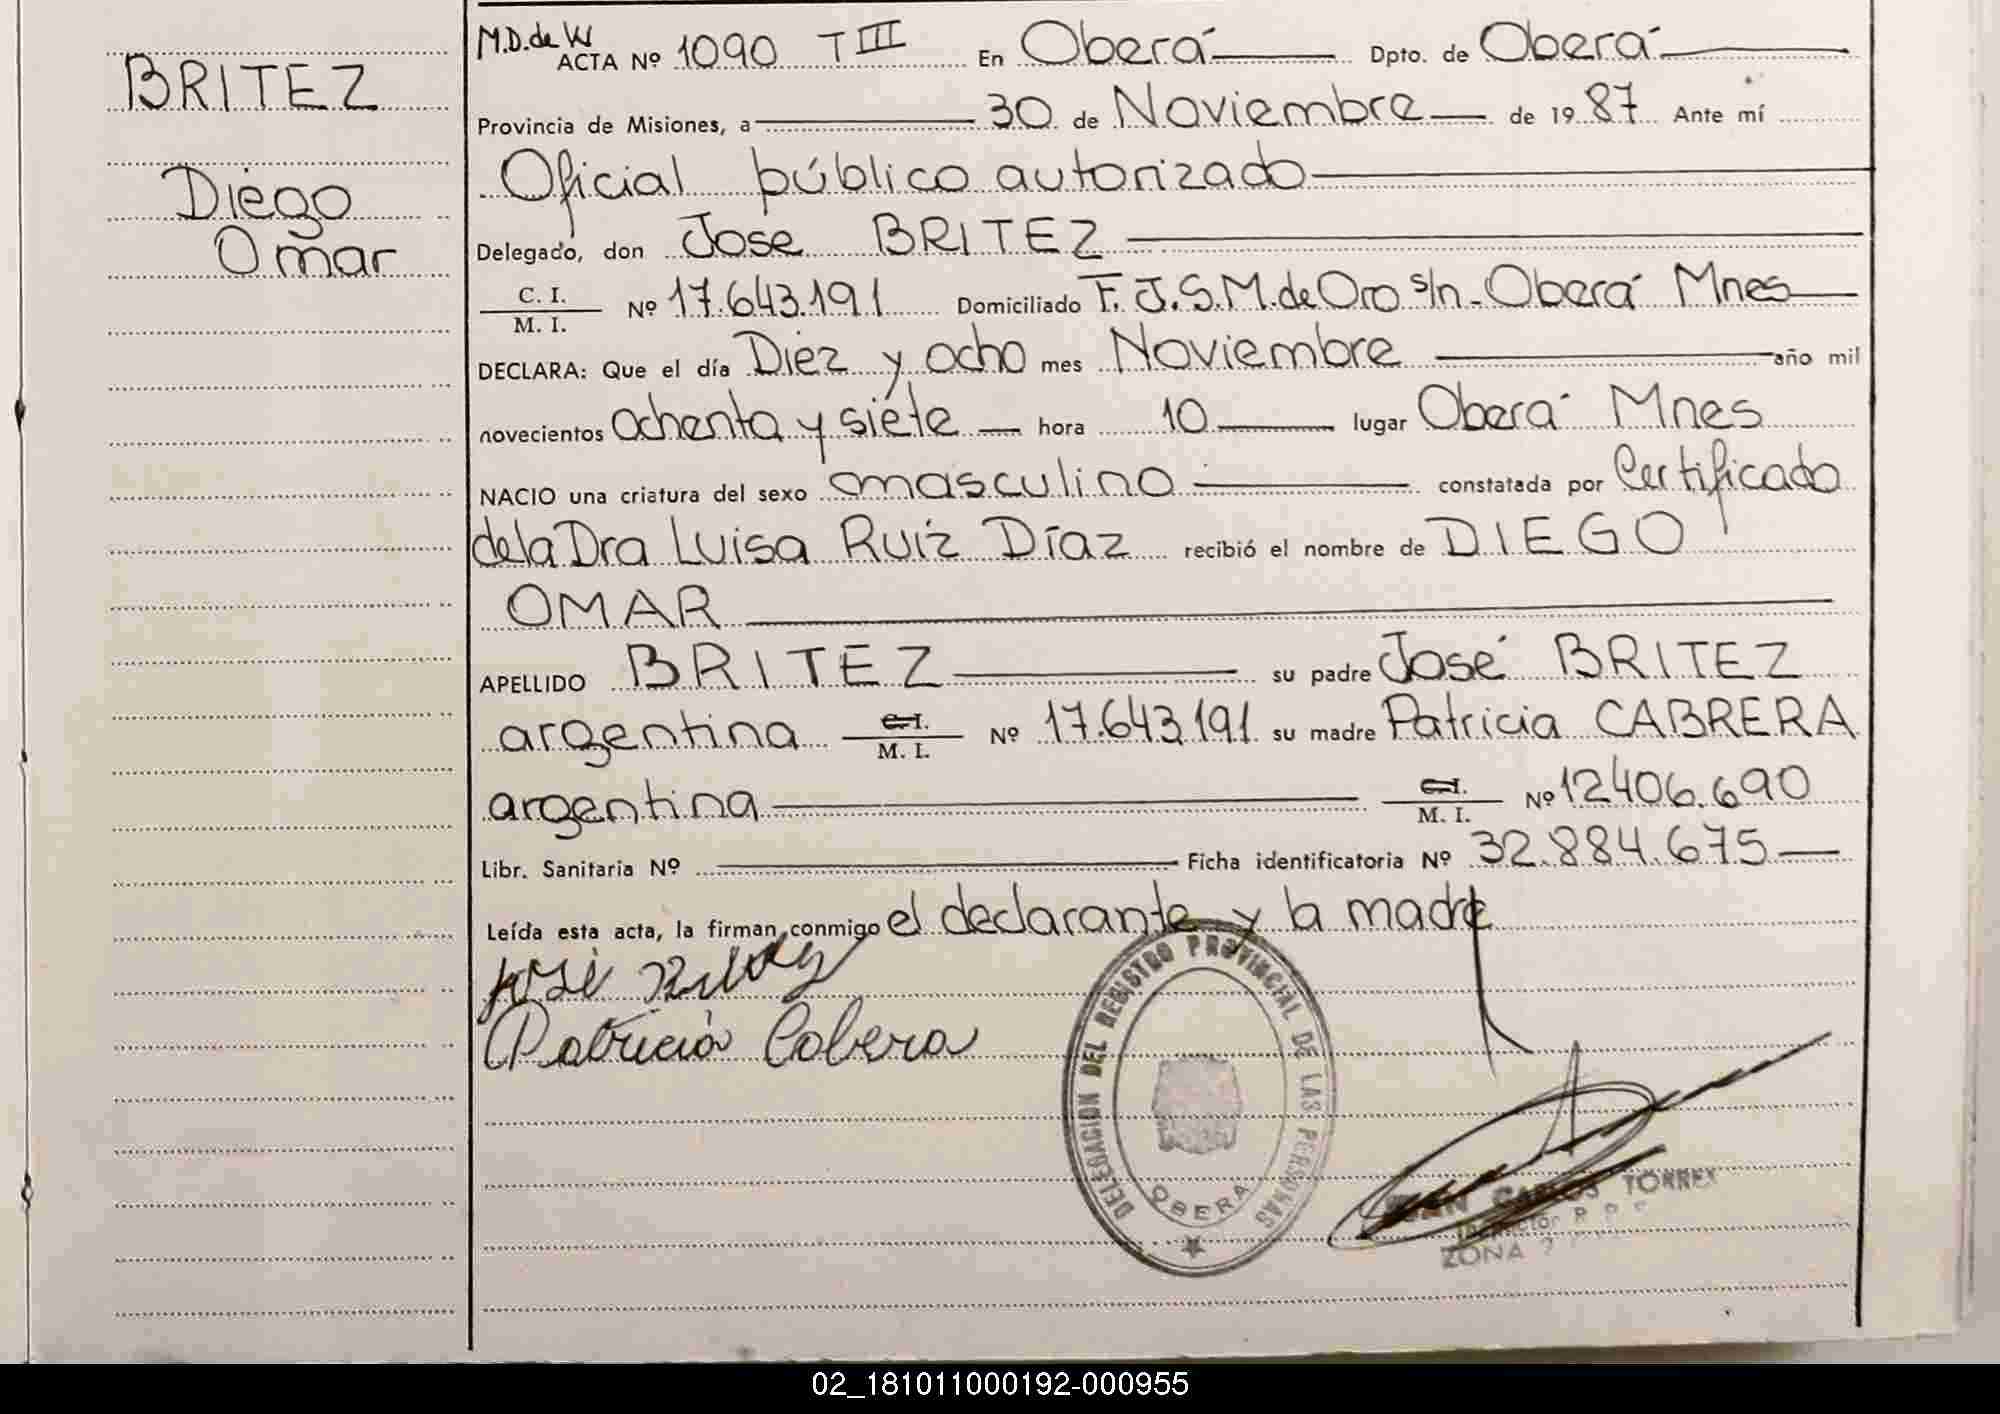 BRITEZ
Diego
Omar
M.D. de W
ACTA Nº 1090 T III En Oberá Dpto. de Oberá
Provincia de Misiones, a 30 de Noviembre de 1987 Ante mí
Oficial público autorizado
Delegado, don Jose BRITEZ
C. I.
M. I. Nº 17.643.191 Domiciliado F. J. S. M. de Oro s/n - Oberá Mnes
DECLARA: Que el día Diez y ocho mes Noviembre año mil
novecientos ochenta y siete hora 10 lugar Oberá Mnes
NACIO una criatura del sexo masculino constatada por Certificado
de la Dra Luisa Ruiz Díaz recibió el nombre de DIEGO
OMAR
APELLIDO BRITEZ su padre José BRITEZ
argentina C. I. M. I. Nº 17.643.191 su madre Patricia CABRERA
argentina C. I. M. I. Nº 12406.690
Libr. Sanitaria Nº Ficha identificatoria Nº 32.884.675
Leída esta acta, la firman conmigo el declarante y la madre
José
Patricia Cabrera
DELEGACION DEL REGISTRO PROVINCIAL DE LAS PERSONAS
OBERA
JUAN CARLOS TORRES
Inspector R P
ZONA
02_181011000192-000955